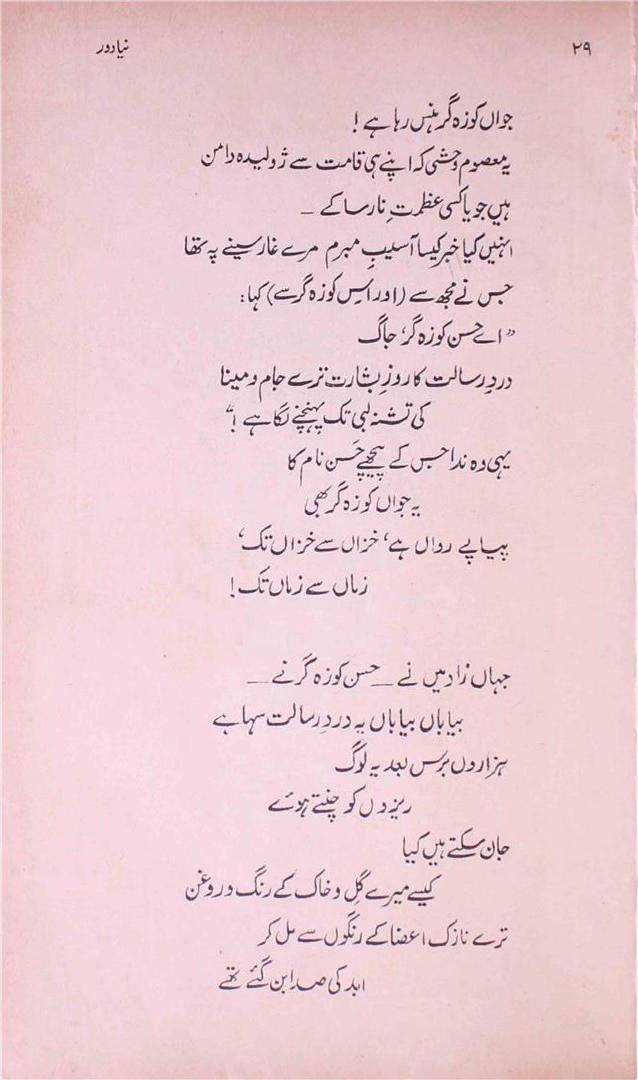 ۲۹ نیا دور
جواں کوزہ گر ہنس رہا ہے !
یہ معصوم وحشی کہ اپنے ہی قامت سے ژولیدہ دامن
ہیں جویا کسی عظمتِ نارسا کے ـ
انہیں کیا خبر کیسا آسیبِ مبرم مرے غار سینے پہ تھا
جس نے مجھ سے (اور اس کوزہ گر سے) کہا:
"اے حسن کوزہ گر، جاگ
دردِ رسالت کا روزِ بشارت ترے جام و مینا
کی تشنہ لبی تک پہنچنے لگا ہے !"
یہی وہ ندا جس کے پیچھے حَسن نام کا
یہ جواں کوزہ گر بھی
پیاپے رواں ہے، خزاں سے خزاں تک،
زماں سے زماں تک !
جہاں زاد میں نے ـ حسن کوزہ گر نے ـ
بیاباں بیاباں یہ دردِ رسالت سہا ہے
ہزاروں برس بعد یہ لوگ
ریزوں کو چنتے ہوئے
جان سکتے ہیں کیا
کیسے میرے گِل و خاک کے رنگ و روغن
ترے نازک اعضا کے رنگوں سے مل کر
ابد کی صدا بن گئے تھے